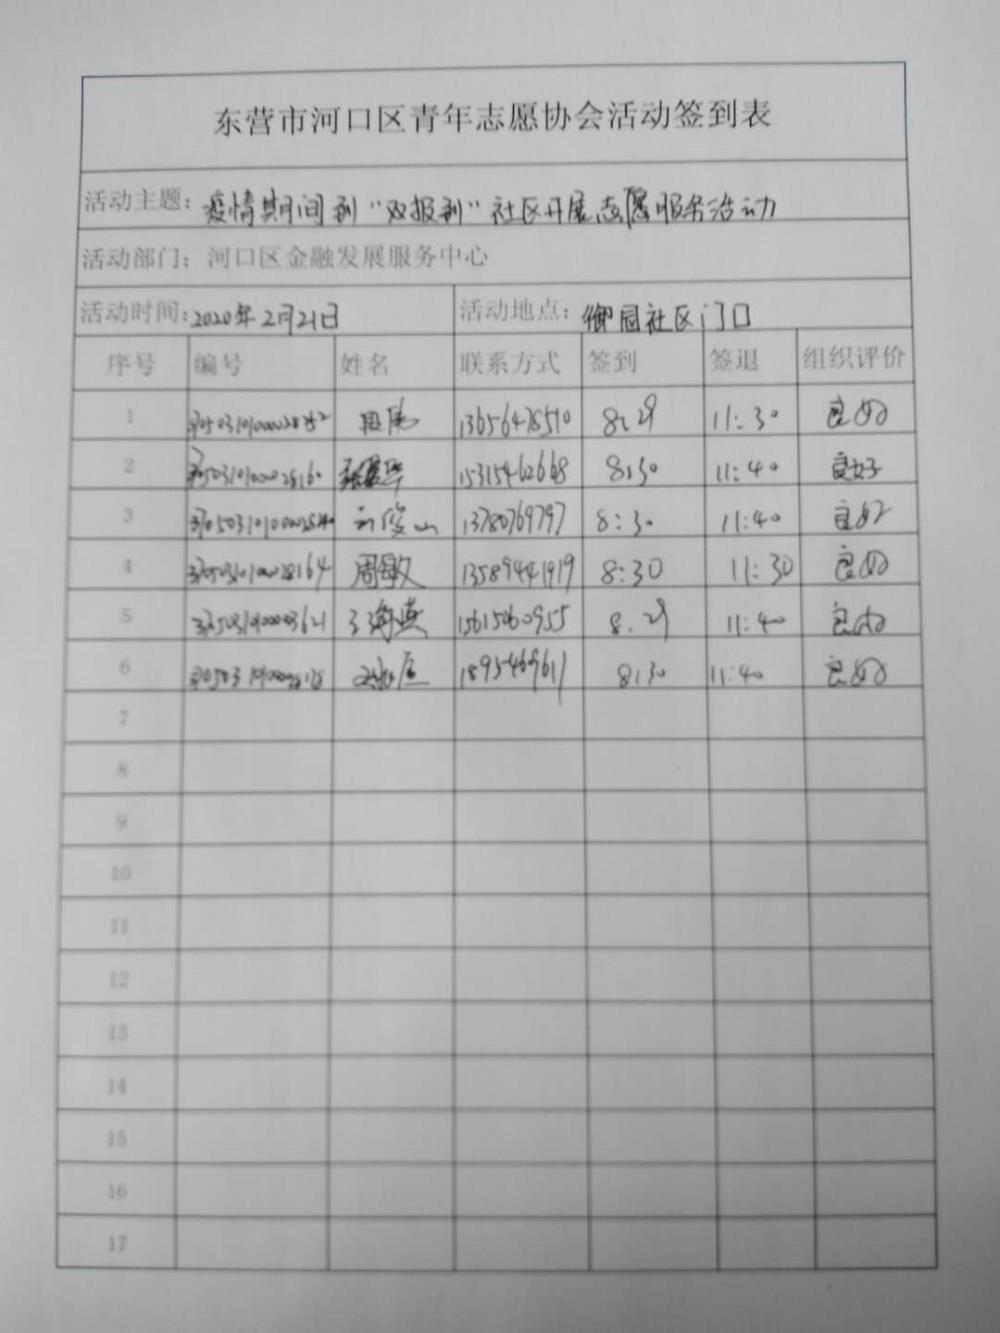 东营市河口区青年志愿协会活动签到表
活动主题：疫情期间到“双报到”社区开展志愿服务活动
活动部门：河口区金融发展服务中心
活动时间：2020年2月21日 活动地点：御园社区门口
序号 编号 姓名 联系方式 签到 签退 组织评价
1 13656478510 8:29 11:30 良好
2 15315462668 8:30 11:40 良好
3 13780769797 8:30 11:40 良好
4 周敏 13589441919 8:30 11:30 良好
5 15615060955 8:29 11:40 良好
6 18954696611 8:30 11:40 良好
7
8
9
10
11
12
13
14
15
16
17